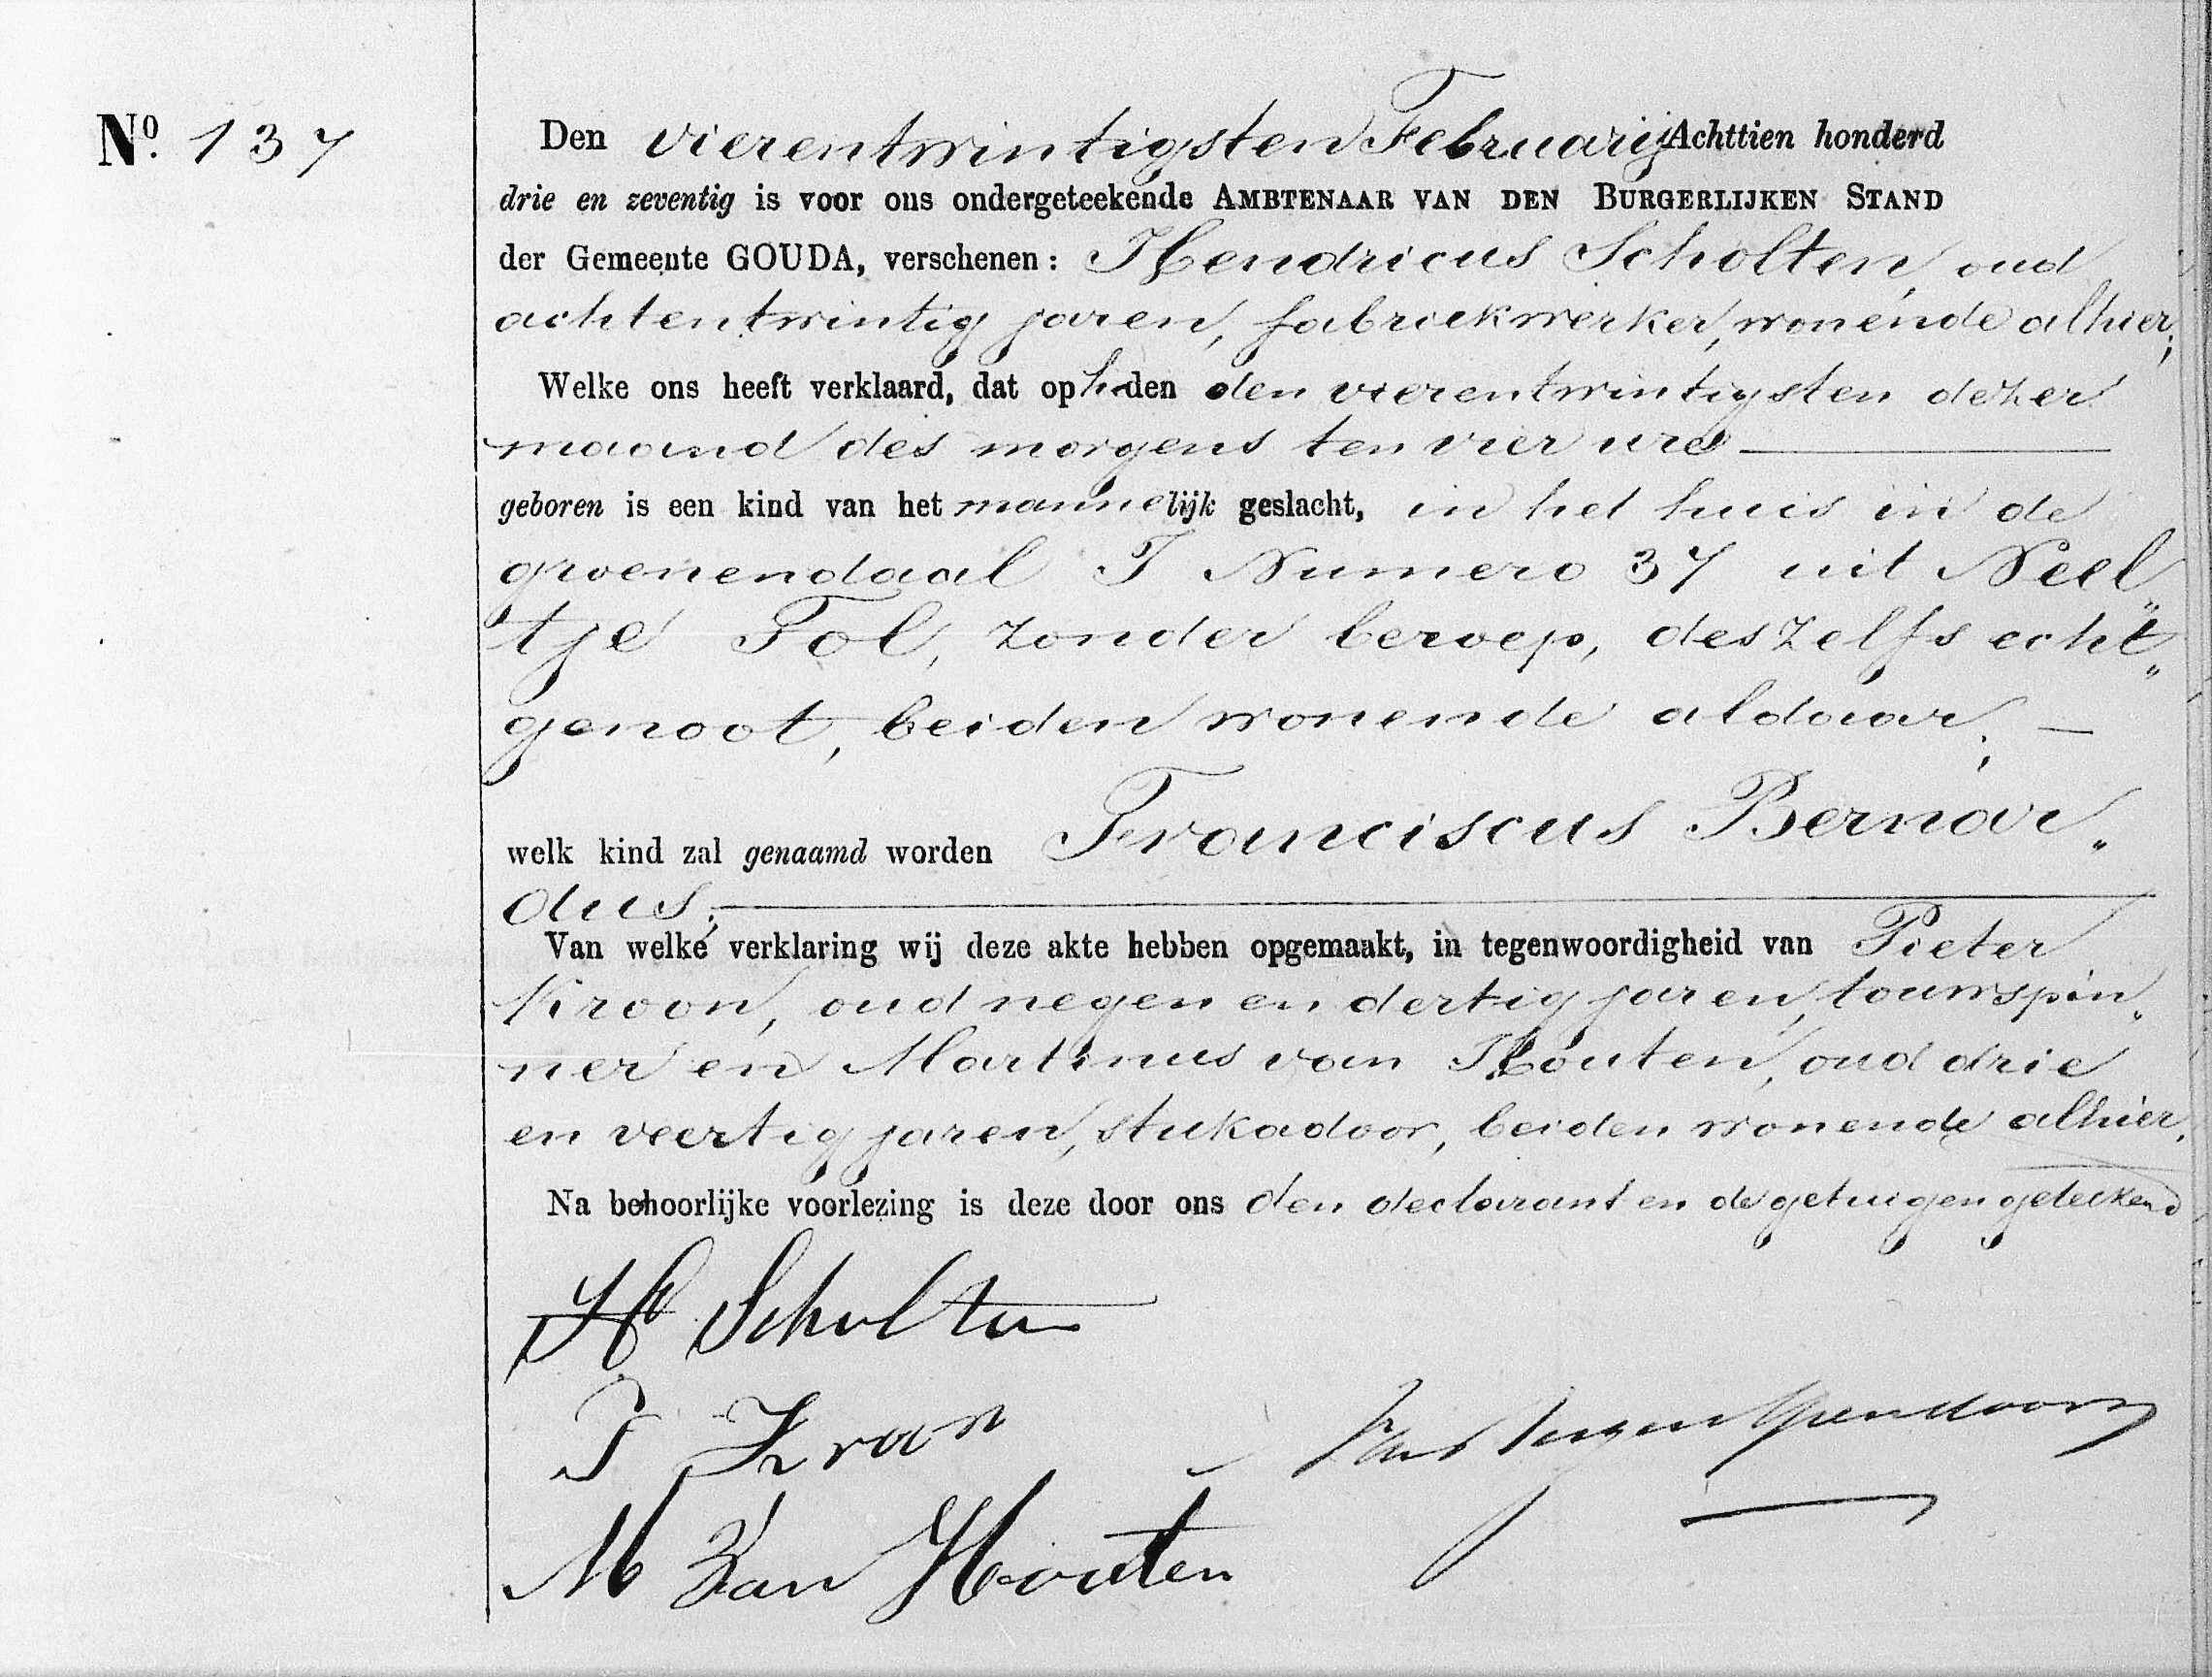 No. 137
Den vierentwintigsten Februarij Achttien honderd
drie en zeventig is voor ons ondergeteekende AMBTENAAR VAN DEN BURGERLIJKEN STAND
der Gemeente GOUDA, verschenen: Hendricus Scholten, oud
achtentwintig jaren, fabriekwerker, wonende alhier;
Welke ons heeft verklaard, dat op heden den vierentwintigsten dezer
maand des morgens ten vier ure
geboren is een kind van het mannelijk geslacht, in het huis in de
groenendaal I Numero 37 uit Neel„
tje Tol, zonder beroep, deszelfs echt„
genoot, beiden wonende aldaar; —
welk kind zal genaamd worden Franciscus Bernar„
dus;
Van welke verklaring wij deze akte hebben opgemaakt, in tegenwoordigheid van Pieter
Kroon, oud negen en dertig jaren, touwspin„
ner en Martinus van Houten, oud drie
en veertig jaren, stukadoor, beiden wonende alhier.
Na behoorlijke voorlezing is deze door ons den declarant en de getuigen geteekend
H Scholten
P Kroon
M Van Houten